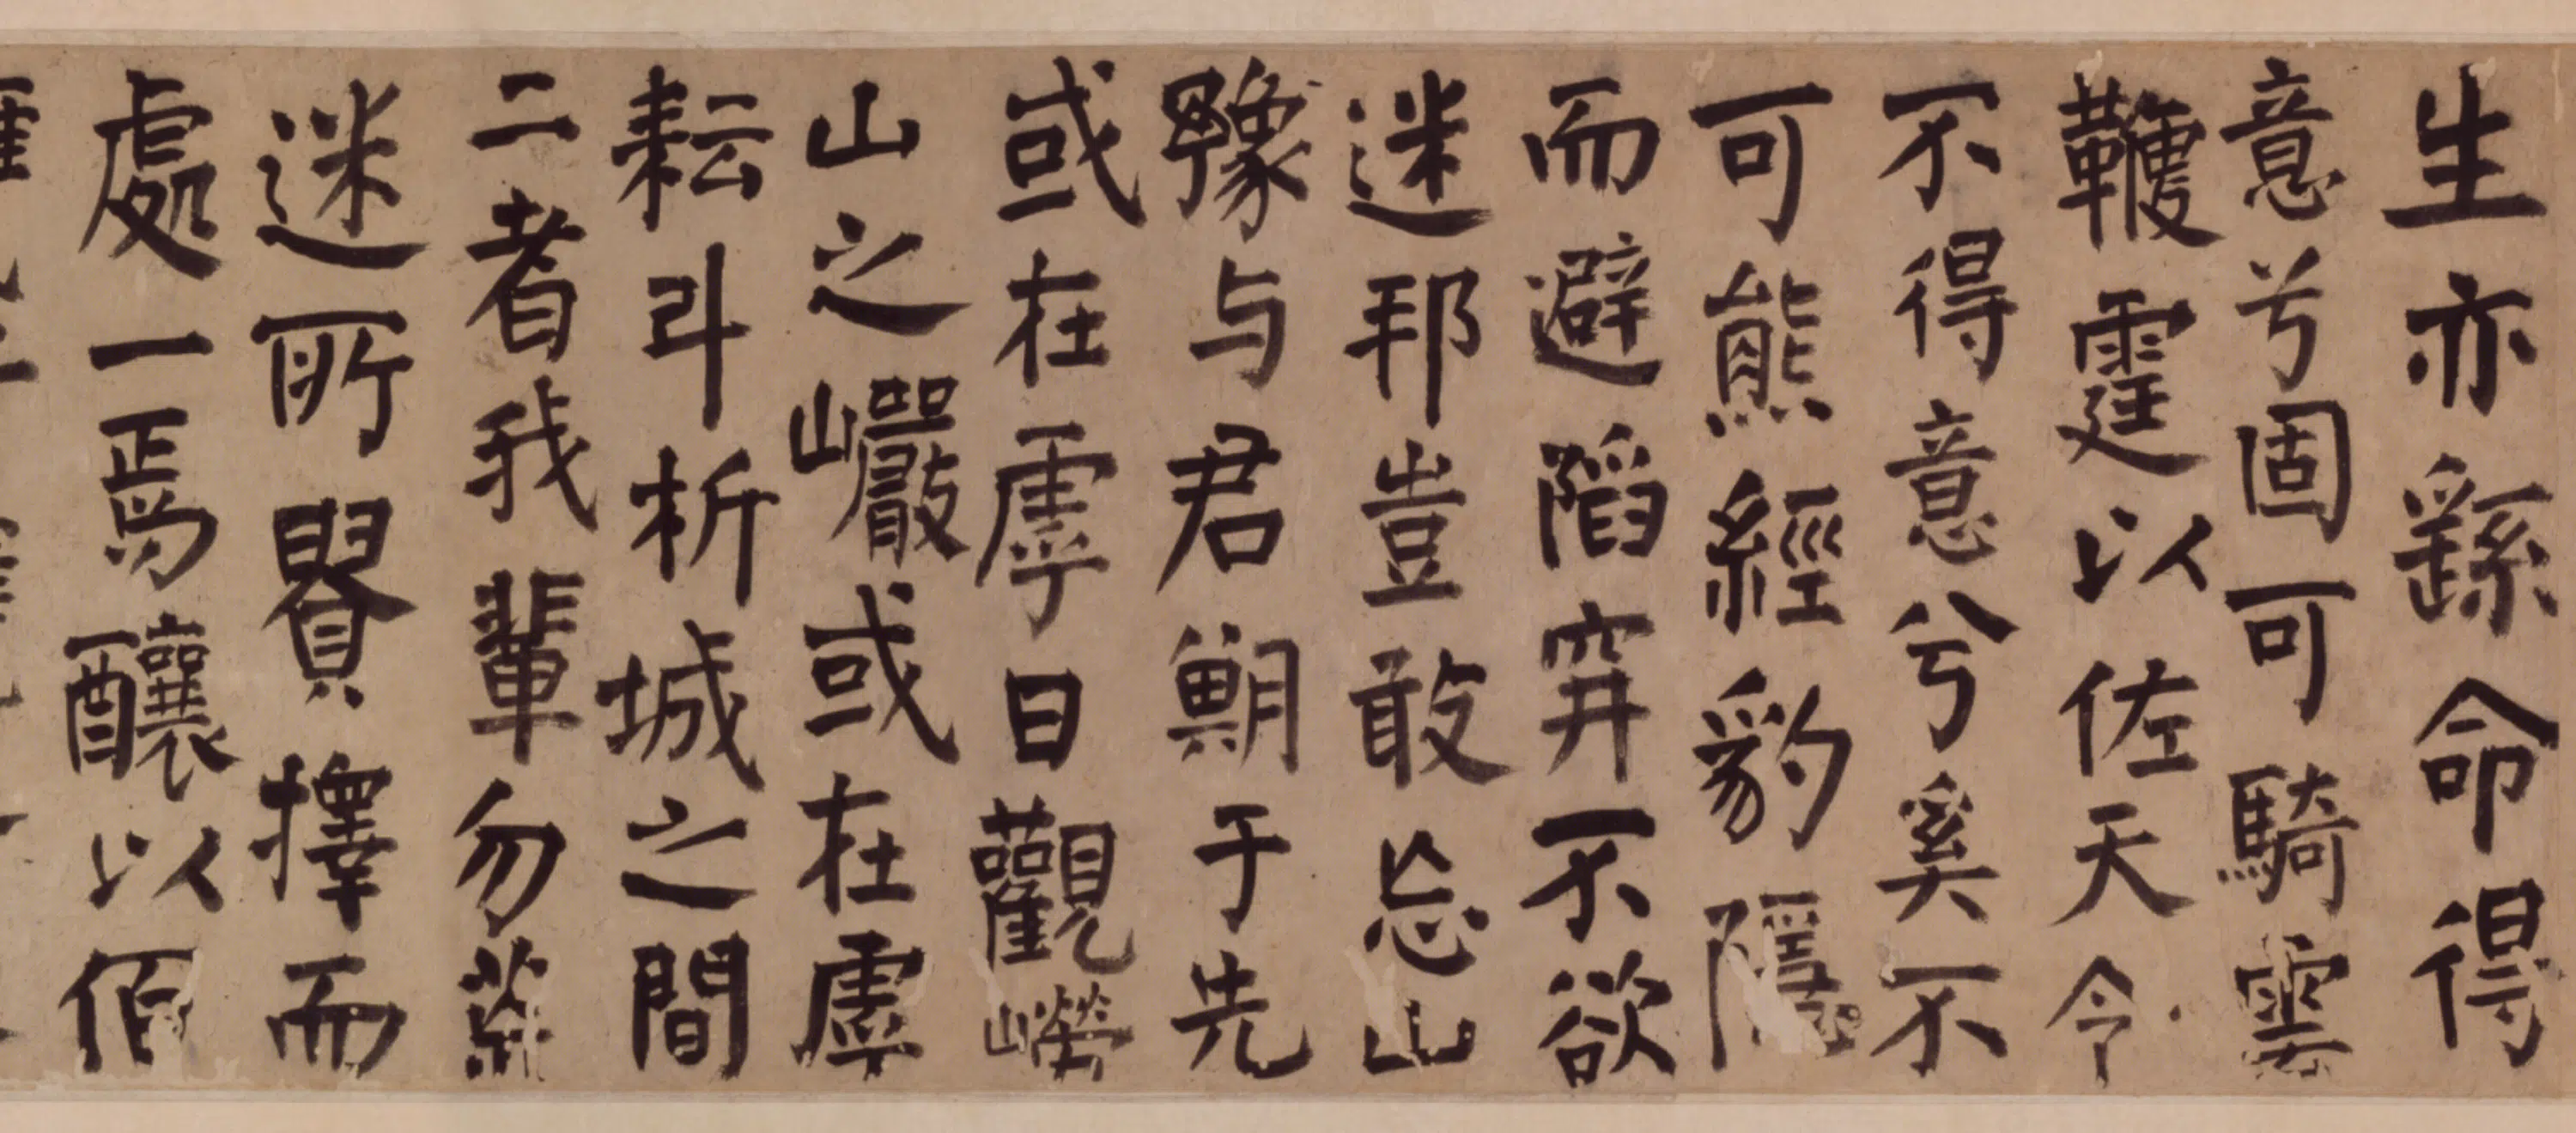 生亦繇命得
意兮固可騎雲
鞭霆以佐天令
不得意兮奚不
可熊經豹隱
而避陷穽不欲
迷邦豈敢忘山
豫与君期于先
或在虖日觀嶗
山之巖或在虖
耘斗析城之間
二者我輩勿
迷所賢擇而
處一焉釀以佰